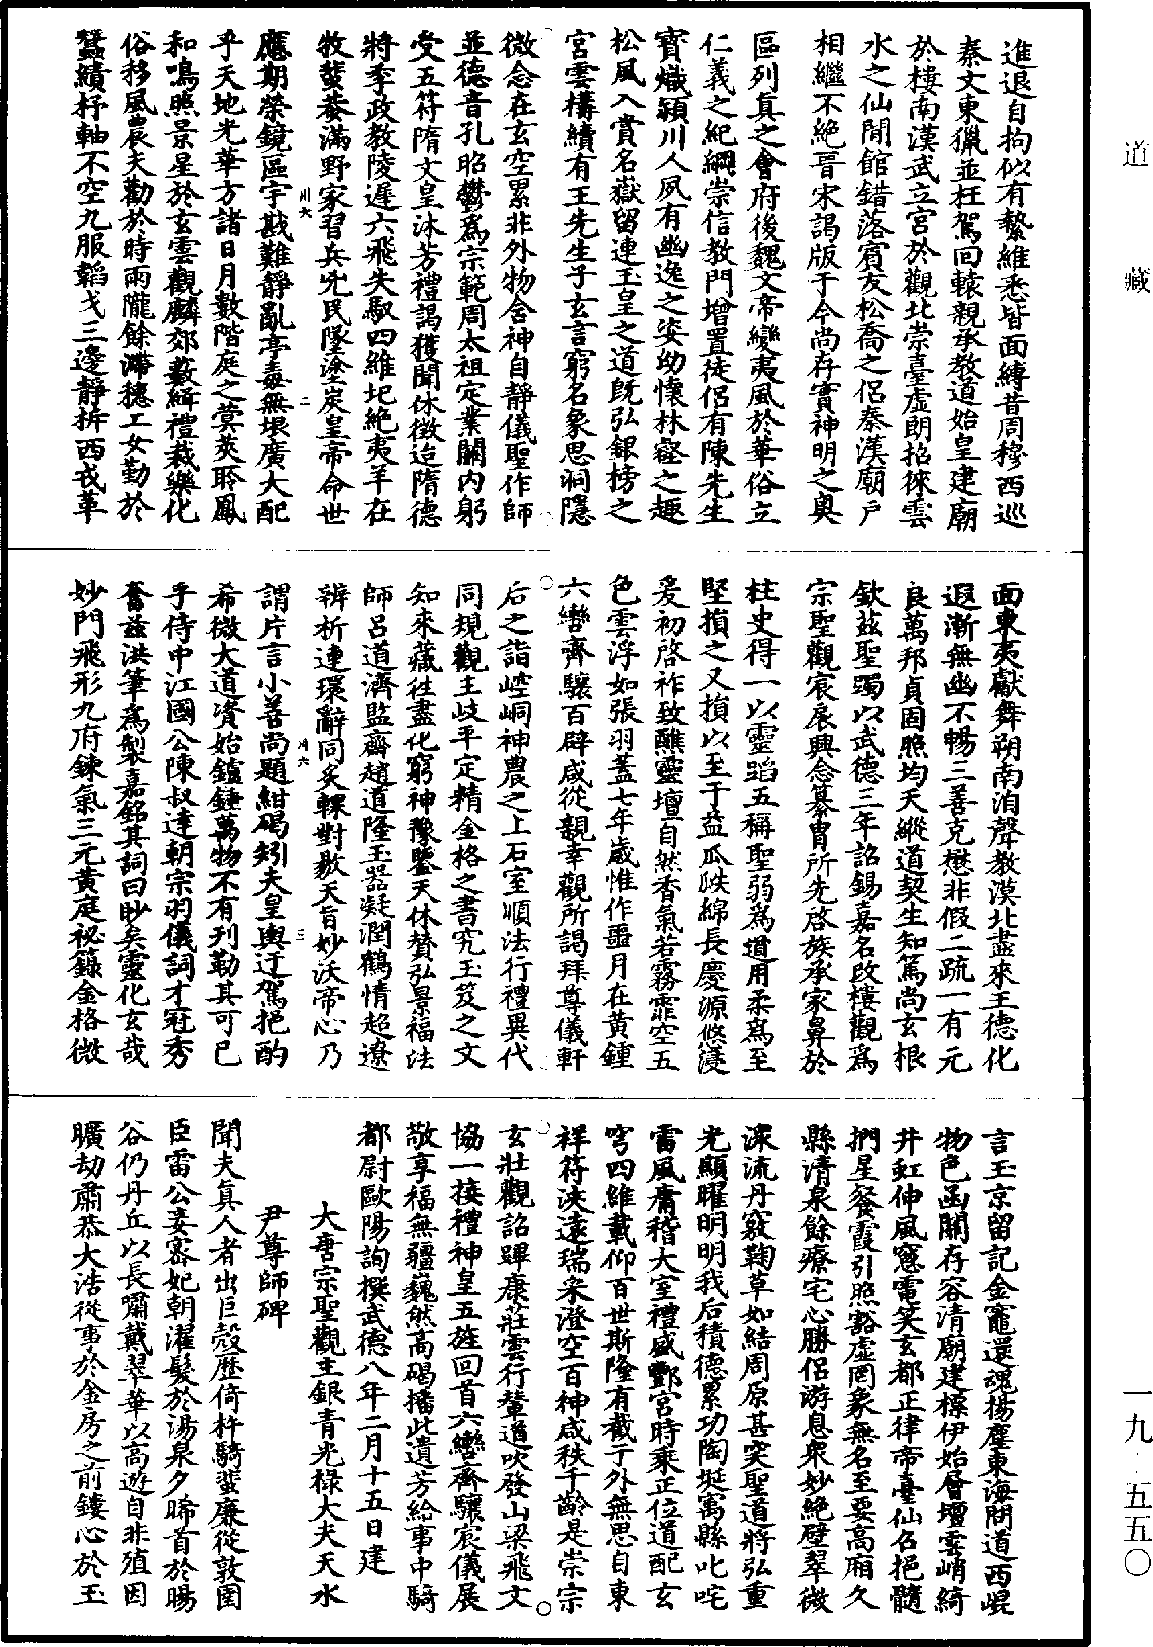 進退自拘似有縶維悉皆面縛昔周穆西巡
秦文東獵並枉駕回轅親承教道始皇建廟
於樓南漢武立宮於觀北崇臺虛朗招徠雲
水之仙閒館錯落賓友松喬之侶秦漢廟戶
相繼不絕晉宋謁版于今尚存實神明之奧
區列真之會府後魏文帝變夷風於華俗立
仁義之紀綱崇信教門增置徒侶有陳先生
寶熾潁川人夙有幽逸之姿幼懷林壑之趣
松風入賞名嶽留連玉皇之道既弘銀榜之
宮雲構續有王先生子玄言窮名象思洞隱
微念在玄空累非外物舍神自靜儀聖作師
並德音孔昭鬱為宗範周太祖定業關內躬
受五符隋文皇沐芳禮謁獲聞休徵迨隋德
將季政教陵遲六飛失馭四維圮絕夷羊在
牧蜚蓁滿野家習兵凶民墜塗炭皇帝命世
應期榮鏡區宇戡難靜亂亭毒無垠廣大配
乎天地光華方諸日月數階庭之蓂莢聆鳳
和鳴照景星於玄雲觀麟郊藪緝禮裁樂化
俗移風農夫勸於時雨隴餘滯穗工女勤於
蠶績杼軸不空九服韜戈三邊靜柝西戎革
面東夷獻舞朔南洎聲教漠北盡來王德化
遐漸無幽不暢三善克懋非假二疏一有元
良萬邦貞固照均天縱道契生知篤尚玄根
欽茲聖躅以武德三年詔錫嘉名改樓觀為
宗聖觀宸扆興念纂胄所先啓族承家鼻於
柱史得一以靈蹈五稱聖弱為道用柔為至
堅損之又損以至于益瓜瓞綿長慶源悠浸
爰初啓祚致醮靈壇自然香氣若霧霏空五
色雲浮如張羽蓋七年歲惟作噩月在黃鍾
六轡齊驤百辟咸從親幸觀所謁拜尊儀軒
后之詣崆峒神農之上石室順法行禮異代
同規觀主岐平定精金格之書究玉笈之文
知來藏往盡化窮神豫鑒天休贊弘景福法
師呂道濟監齋趙道隆玉器凝潤鶴情超遼
辨析連環辭同炙輠對敭天旨妙沃帝心乃
謂片言小善尚題紺碣矧夫皇輿迂駕挹酌
希微大道資始鑪錘萬物不有刊勒其可已
乎侍中江國公陳叔達朝宗羽儀詞才冠秀
奮茲洪筆為製嘉銘其詞曰眇矣靈化玄哉
妙門飛形九府鍊氣三元黃庭祕籙金格微
言玉京留記金竈還魂揚塵東海問道西崐
物色函關存容清廟建標伊始層壇雲峭綺
井虹伸風窻電笑玄都正律帝臺仙召挹髓
捫星餐霞引照豁虛罔象無名至要高廂久
縣清泉餘療宅心勝侶游息衆妙絕壁翠微
深流丹竅鞠草如結周原甚突聖道將弘重
光顯曜明明我后積德累功陶埏寓縣叱咤
雷風庸稽大室禮盛酆宮時乘正位道配玄
穹四維載仰百世斯隆有截于外無思自東
祥符浹遠瑞采澄空百神咸秩千齡是崇宗
玄壯觀詔蹕康莊雲行輦道吹發山梁飛文
協一接禮神皇五旌回首六轡齊驤宸儀展
敬享福無疆巍然高碣播此遺芳給事中騎
都尉歐陽詢撰武德八年二月十五日建
大唐宗聖觀主銀青光祿大夫天水
尹尊師碑
聞夫真人者出巨殼歷倚杵騎蜚廉從敦圄
臣雷公妾宓妃朝濯髮於湯泉夕晞首於暘
谷仍丹丘以長嘯戴翠華以高遊自非殖因
曠劫肅恭大浩從事於金房之前鏤心於玉
川六
二
川六
三
道藏
一九·五五〇